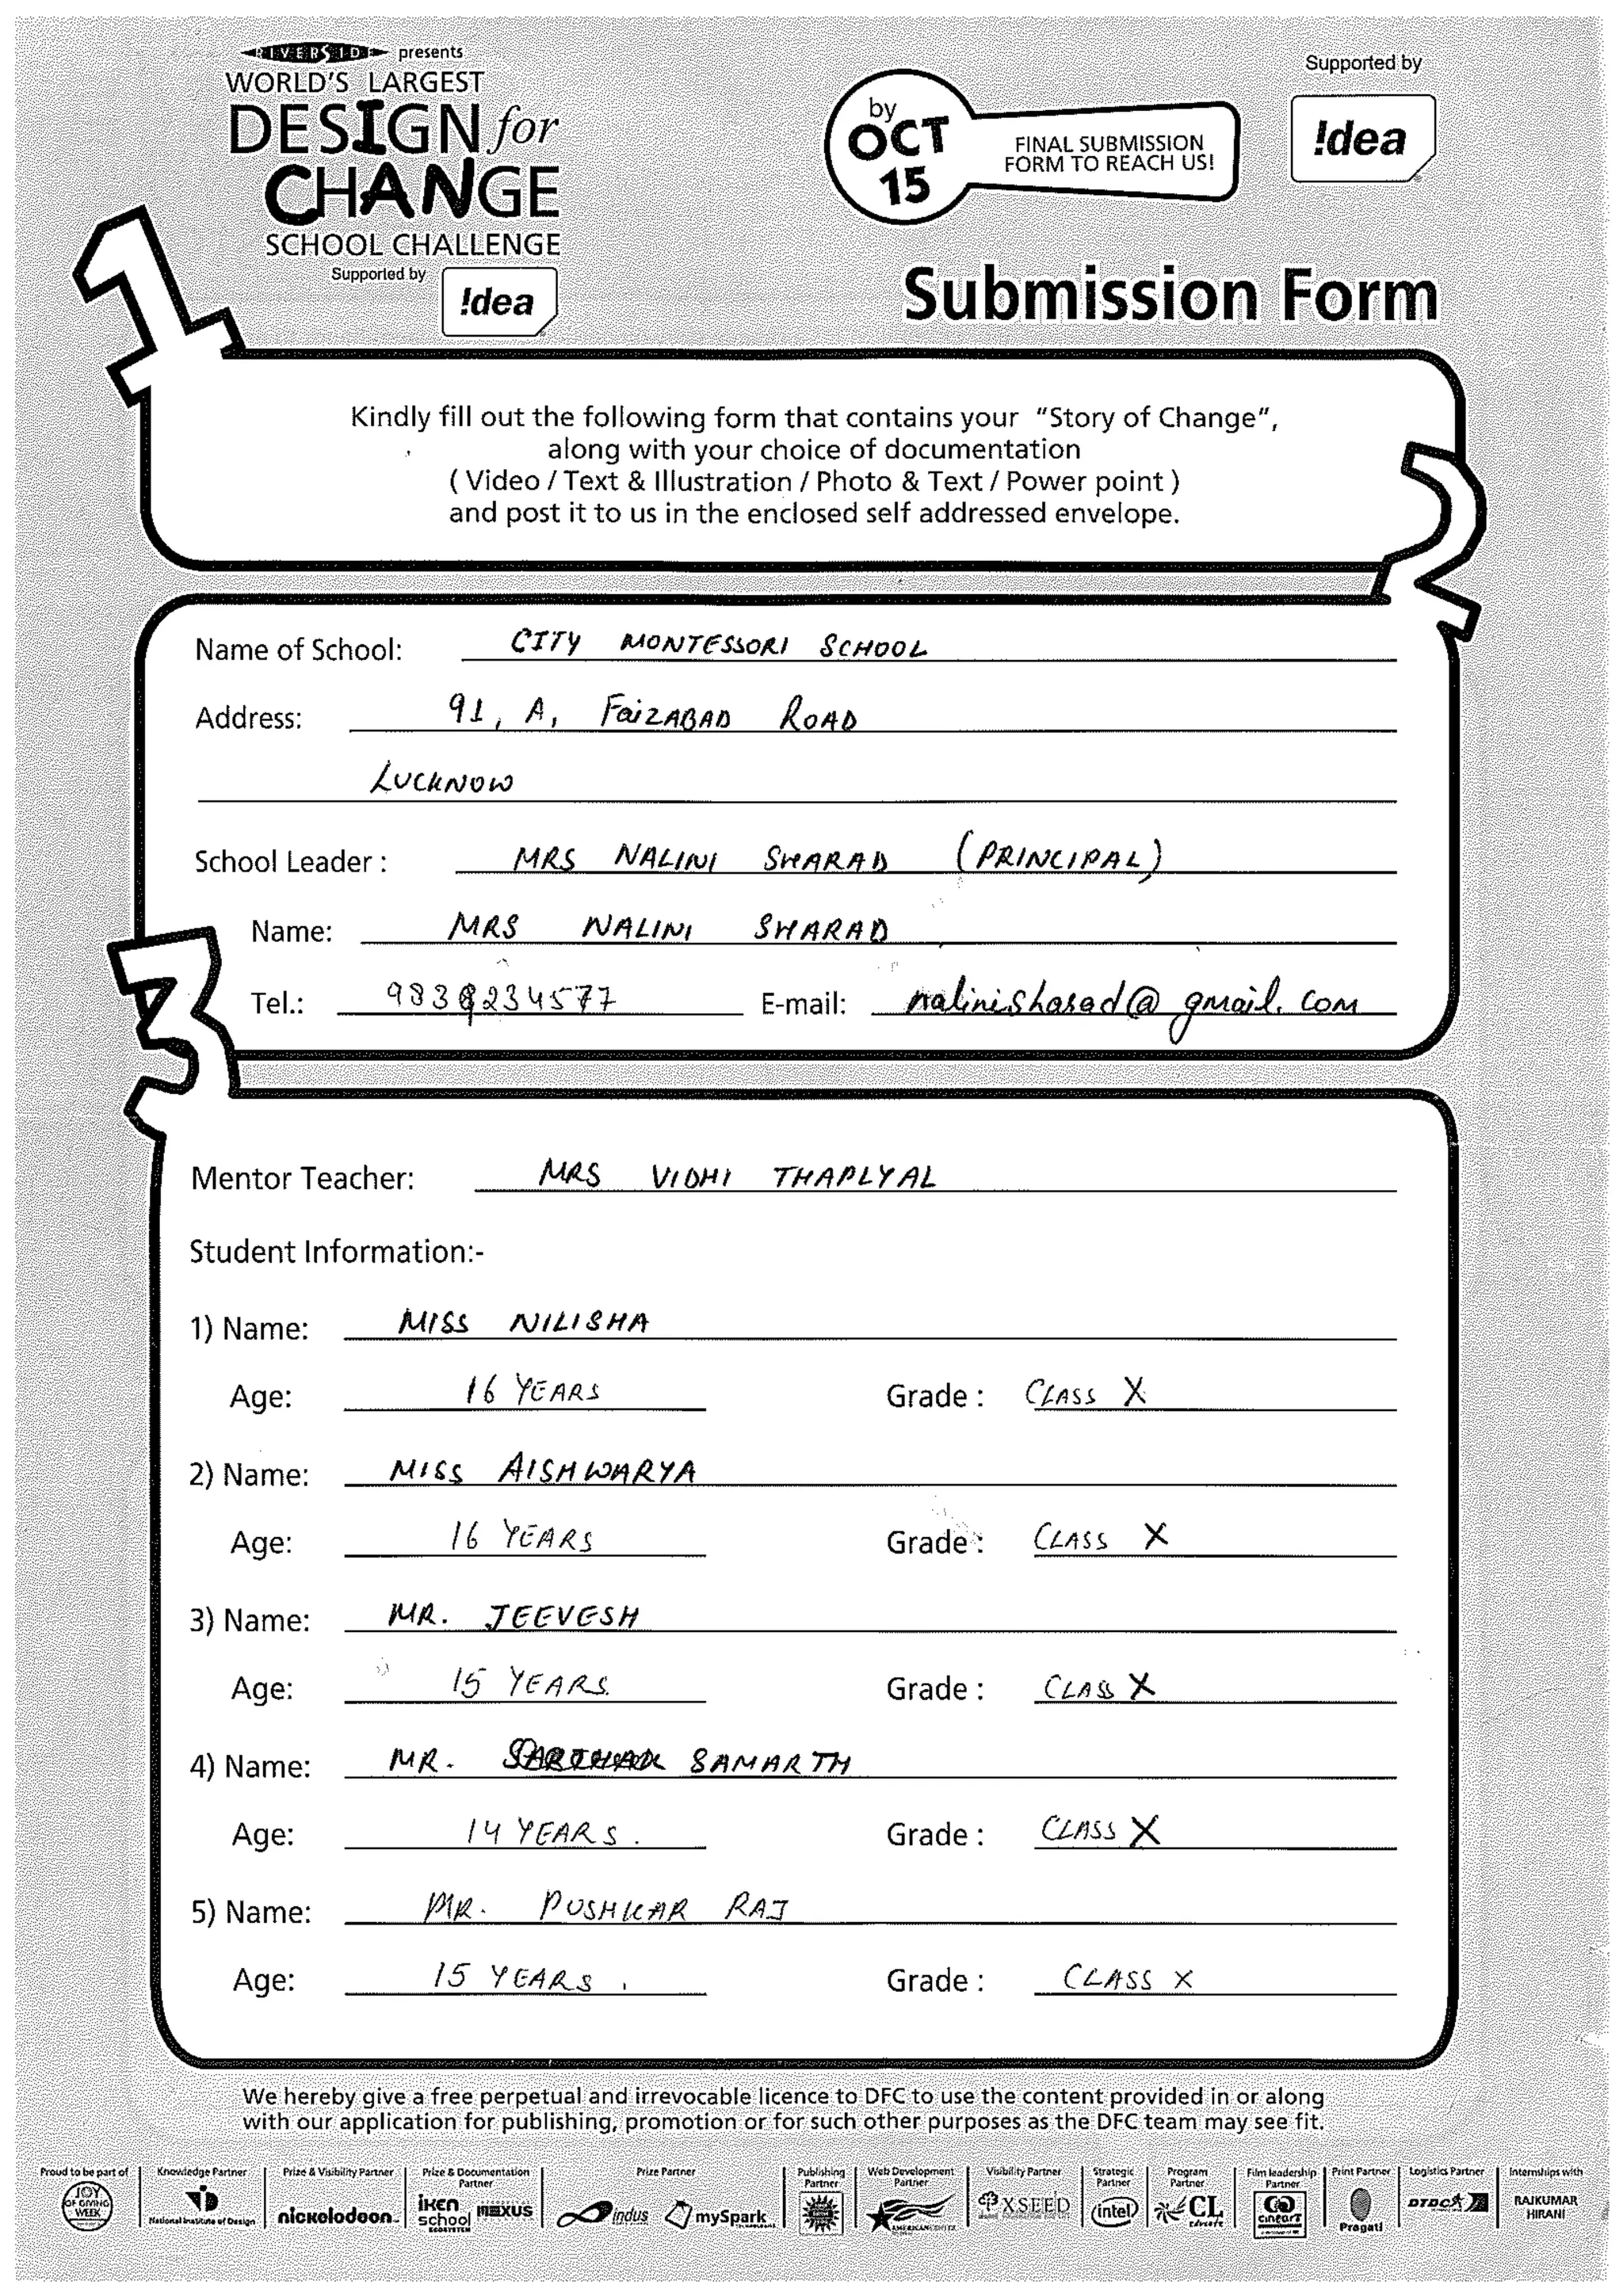 RIVERSIDE presents
WORLD'S LARGEST
DESIGN for
CHANGE
SCHOOL CHALLENGE
Supported by
!dea
by
OCT
15
FINAL SUBMISSION
FORM TO REACH US!
Supported by
!dea
Submission Form
1
Kindly fill out the following form that contains your "Story of Change",
along with your choice of documentation
( Video / Text & Illustration / Photo & Text / Power point )
and post it to us in the enclosed self addressed envelope.
2
Name of School: CITY MONTESSORI SCHOOL
Address: 91, A, FAIZABAD ROAD
LUCKNOW
School Leader : MRS NALINI SHARAD (PRINCIPAL)
Name: MRS NALINI SHARAD
Tel.: 9839234577 E-mail: nalinisharad@gmail.com
3
Mentor Teacher: MRS VIDHI THAPLYAL
Student Information:-
1) Name: MISS NILISHA
Age: 16 YEARS Grade : CLASS X
2) Name: MISS AISHWARYA
Age: 16 YEARS Grade : CLASS X
3) Name: MR. JEEVESH
Age: 15 YEARS. Grade : CLASS X
4) Name: MR. SAMARTH
Age: 14 YEARS. Grade : CLASS X
5) Name: MR. PUSHKAR RAJ
Age: 15 YEARS. Grade : CLASS X
We hereby give a free perpetual and irrevocable licence to DFC to use the content provided in or along
with our application for publishing, promotion or for such other purposes as the DFC team may see fit.
Proud to be part of Knowledge Partner Prize & Visibility Partner Prize & Documentation Partner Prize Partner Publishing Partner Web Development Partner Visibility Partner Strategic Partner Program Partner Film leadership Partner Print Partner Logistics Partner Internships with
JOY OF GIVING WEEK National Institute of Design nickelodeon iken school ECOSYSTEM MEXUS indus mySpark AMERICAN CENTER XSEED intel CL educate CINEART Pragati DTDC RAJKUMAR HIRANI